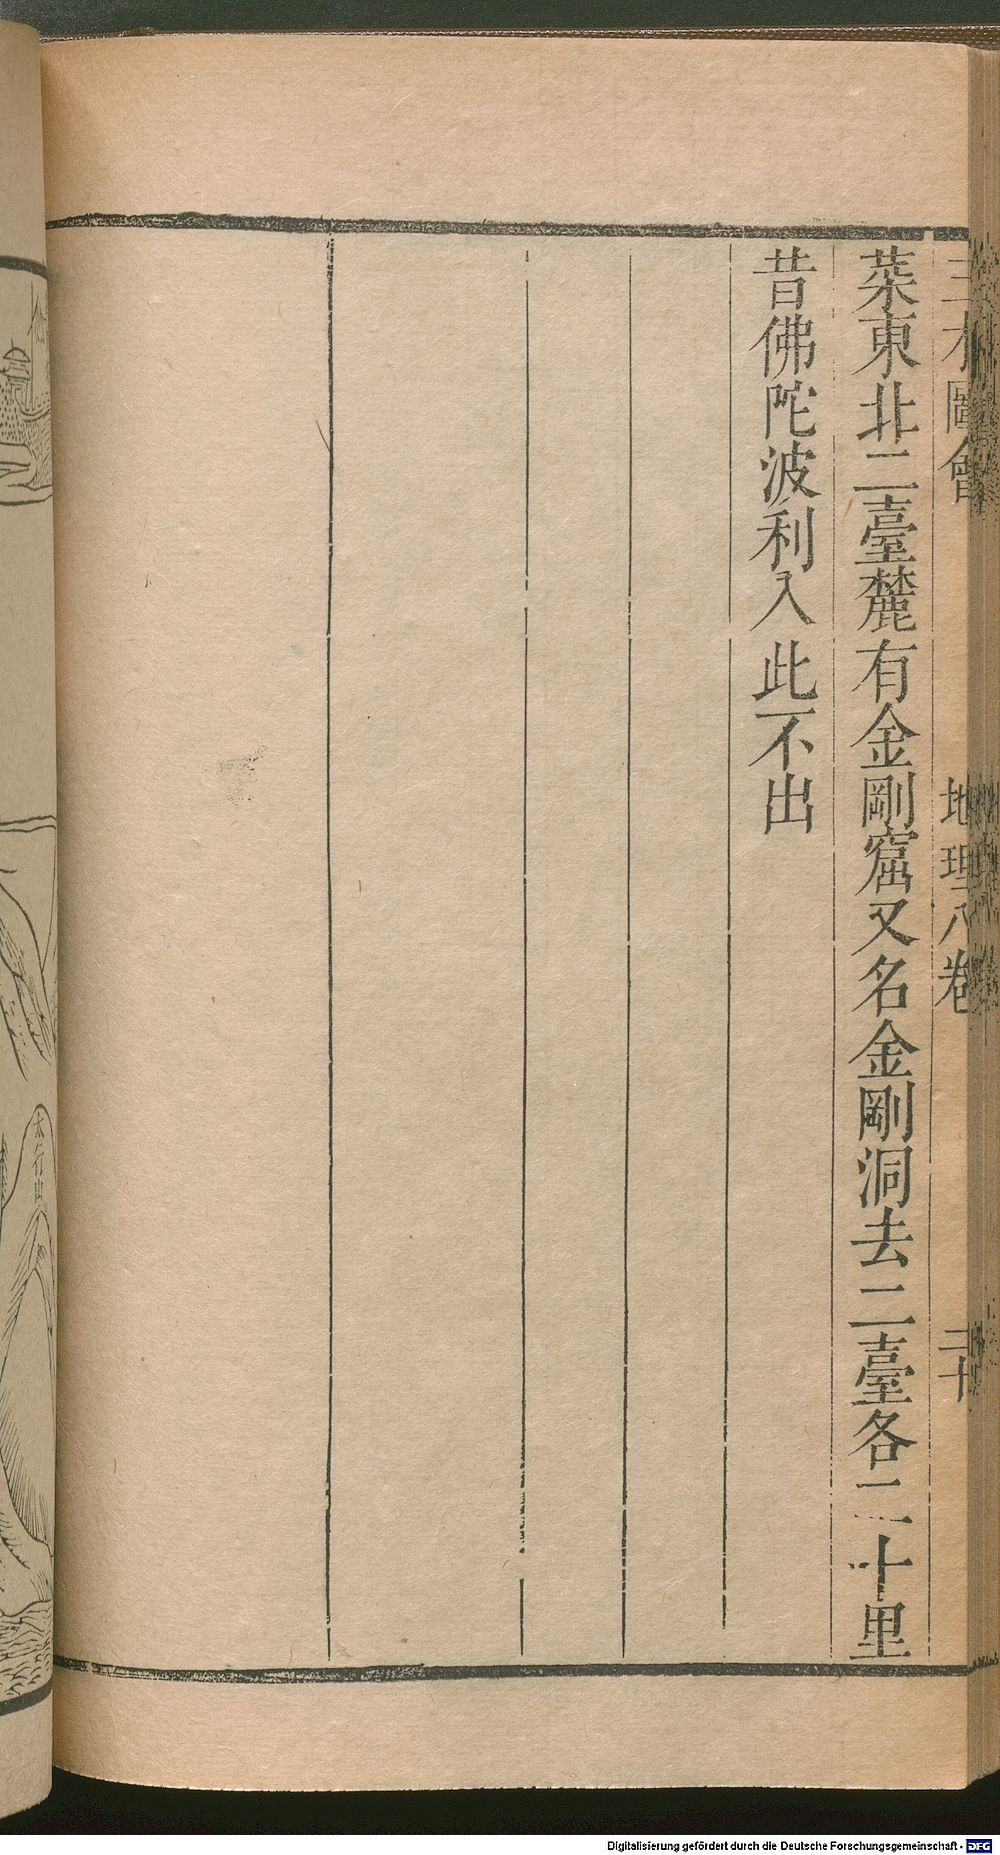 三才圖會 地理八卷 三十
蕖東北二臺麓有金剛窟又名金剛洞去二臺各二十里
昔佛陀波利入此不出
太行山
Digitalisierung gefördert durch die Deutsche Forschungsgemeinschaft - DFG